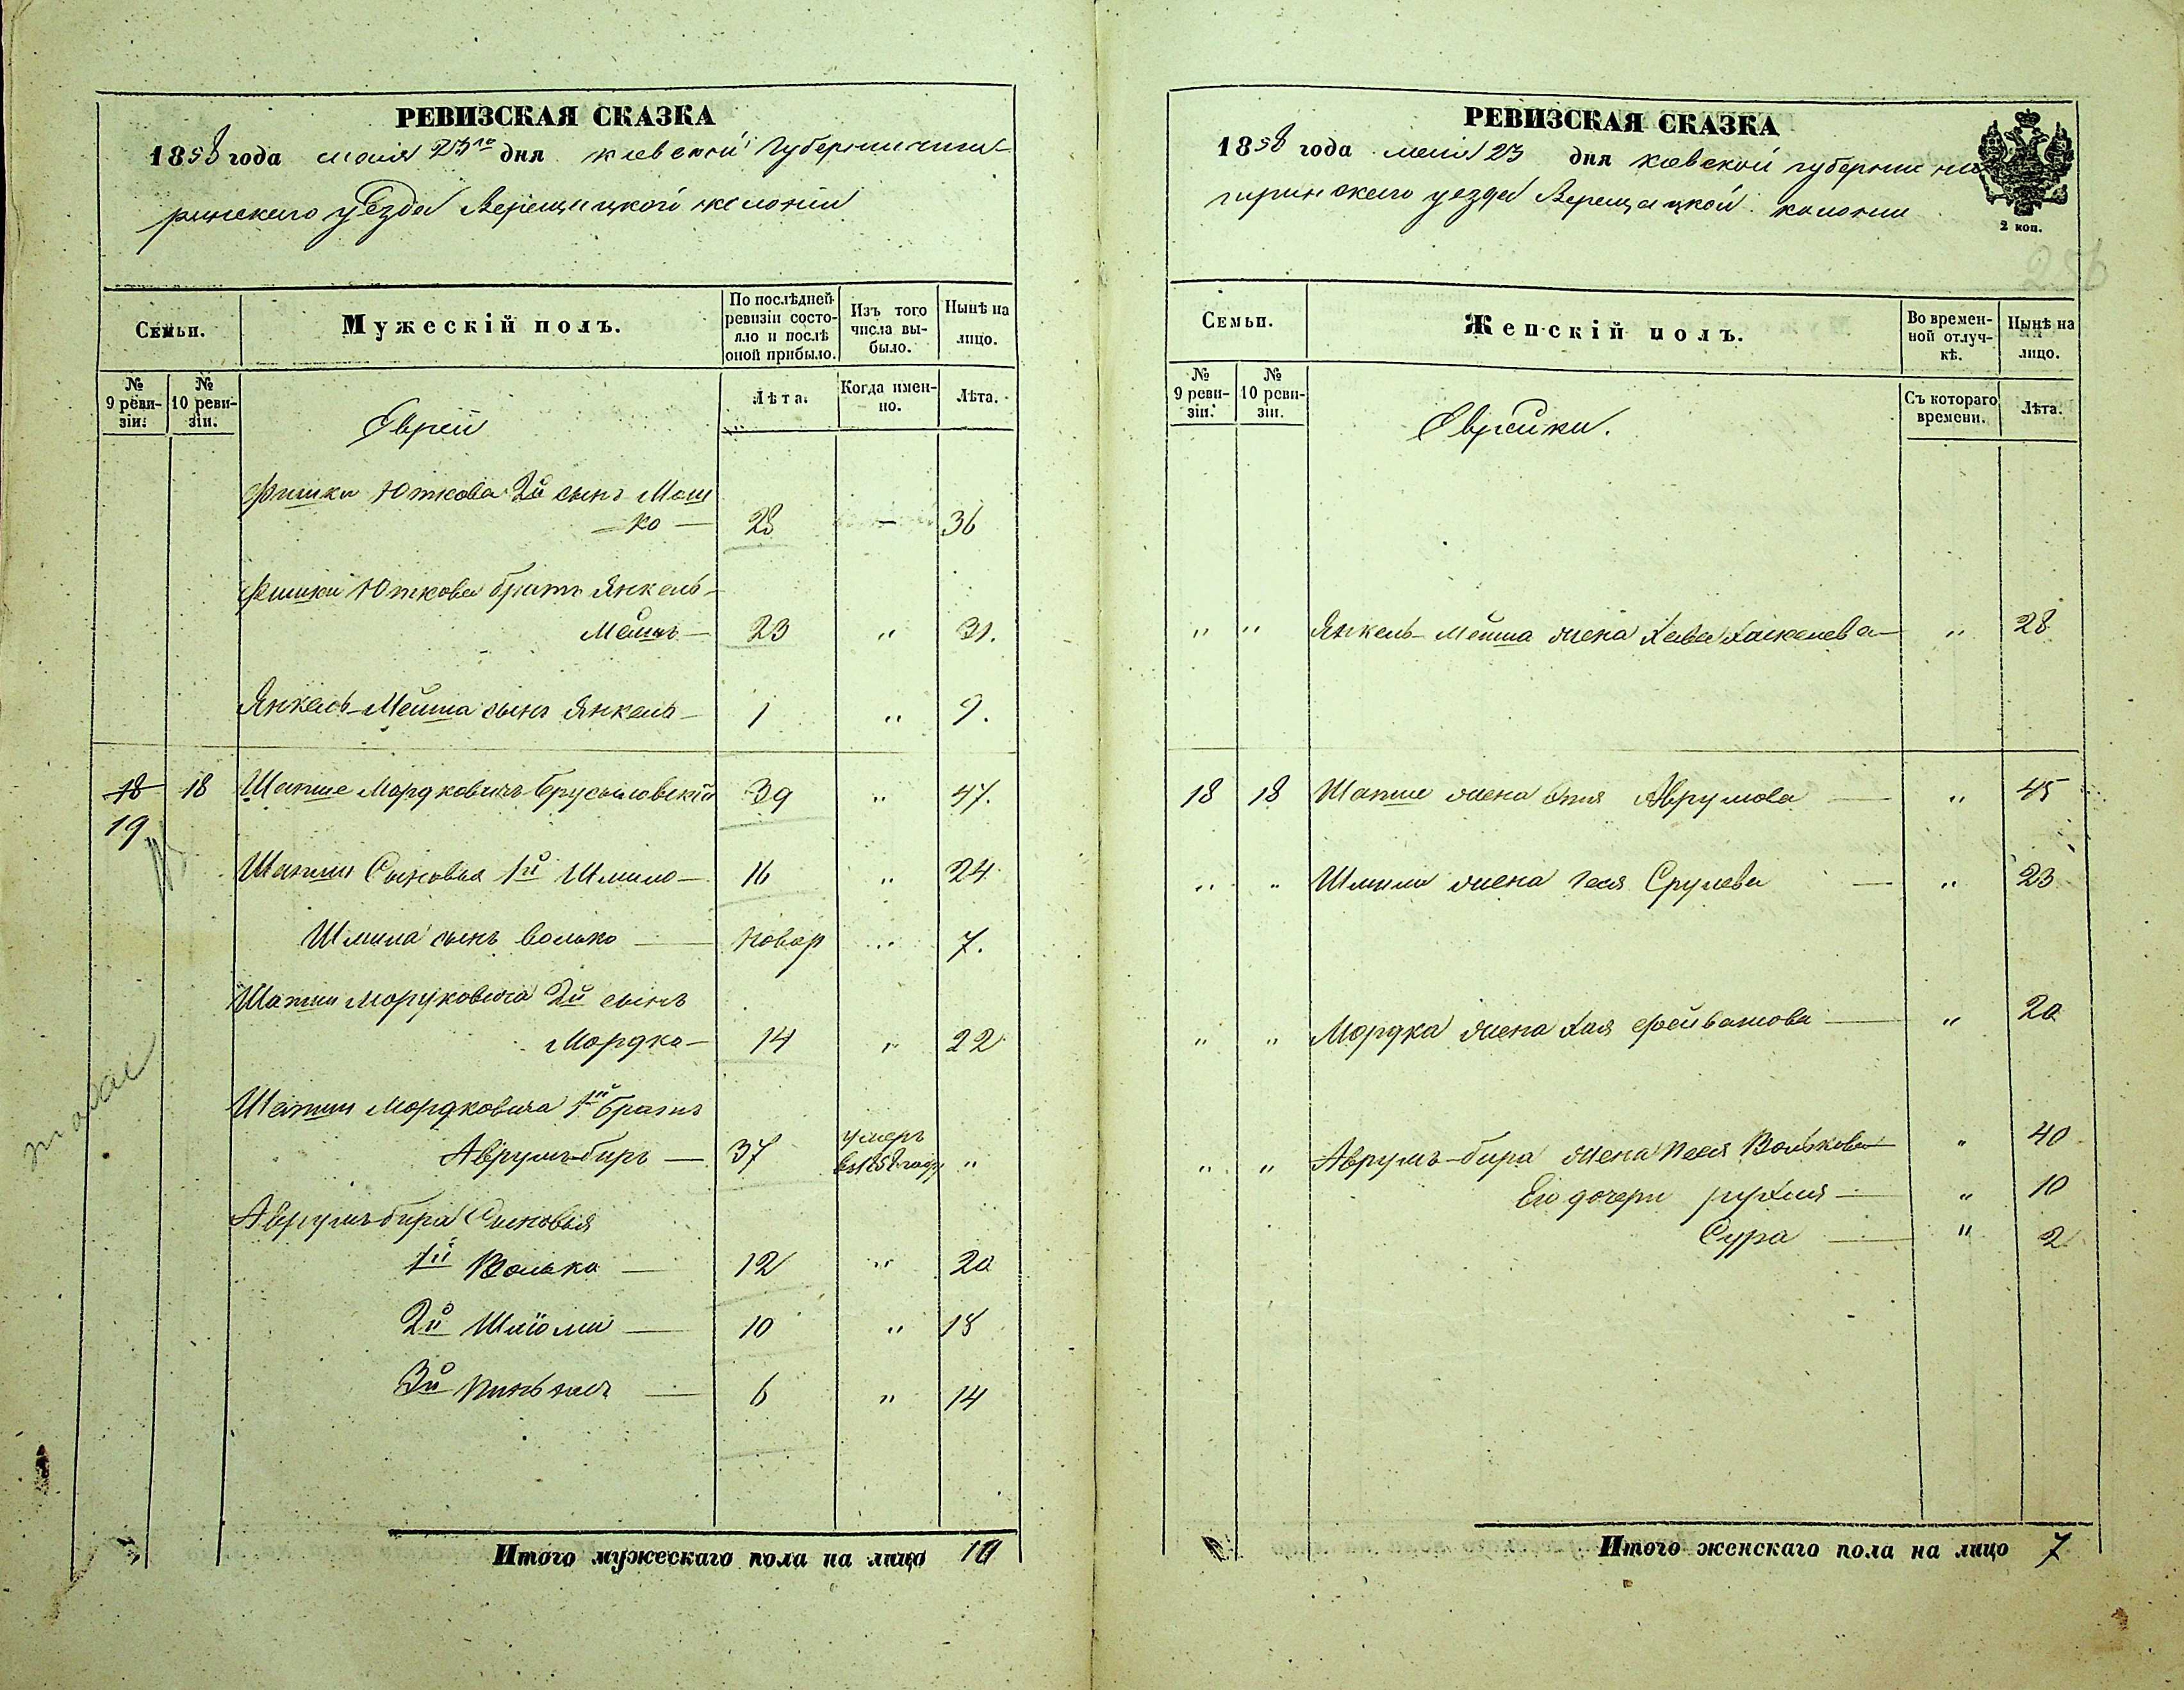 РЕВИЗСКАЯ СКАЗКА
1858 года мая 23го дня киевской губернии чиги-
ринскаго уезда Верещацкой колонии
Семьи.
Мужескій полъ.
По послѣдней ревизіи состояло и послѣ оной прибыло.
Изъ того числа выбыло.
Нынѣ на лицо.
№ 9 ревизіи.
№ 10 ревизіи.
Еврей
Лѣта.
Когда именно.
Лѣта.
Фишки Юткова 2й сынъ Мош
ко — 28 — 36
Фишки Юткова братъ Янкель-
Мейша — 23 " 31.
Янкель-Мейша сынъ Янкель — 1 " 9.
18 18 Шапше Мордковичъ Брусиловскій 39 " 47.
19
Шапши Сыновья 1й Шмило — 16 " 24
Шмила сынъ Волько — новор " 7.
Шапши Мордковича 2й сынъ
Мордко — 14 " 22
Шапши Мордковича 1й братъ
Аврумъ-бирь — 37 умеръ въ 1858 году "
Аврумъ-бира Сыновья
1й Волько — 12 " 20
2й Шлёми — 10 " 18
3й Пинхас — 6 " 14
Итого мужескаго пола на лицо 10
РЕВИЗСКАЯ СКАЗКА
1858 года мая 23 дня киевской губернии чи
гиринскаго уезда Верещацкой колонии
2 коп.
256
Семьи.
Женскій полъ.
Во временной отлучкѣ.
Нынѣ на лицо.
№ 9 ревизіи.
№ 10 ревизіи.
Еврейки.
Съ котораго времени.
Лѣта.
" " Янкель-Мейша жена Хава Хаскелева — " 28
18 18 Шапши жена Этя Аврумова — " 45
" " Шмили жена Геся Срулева — " 23
" " Мордка жена Хая Фойвашова — " 20
" " Аврумъ-бира жена Песя Волькова " 40
Ея дочери Рухля — " 10
Сура — " 2
Итого женскаго пола на лицо 7